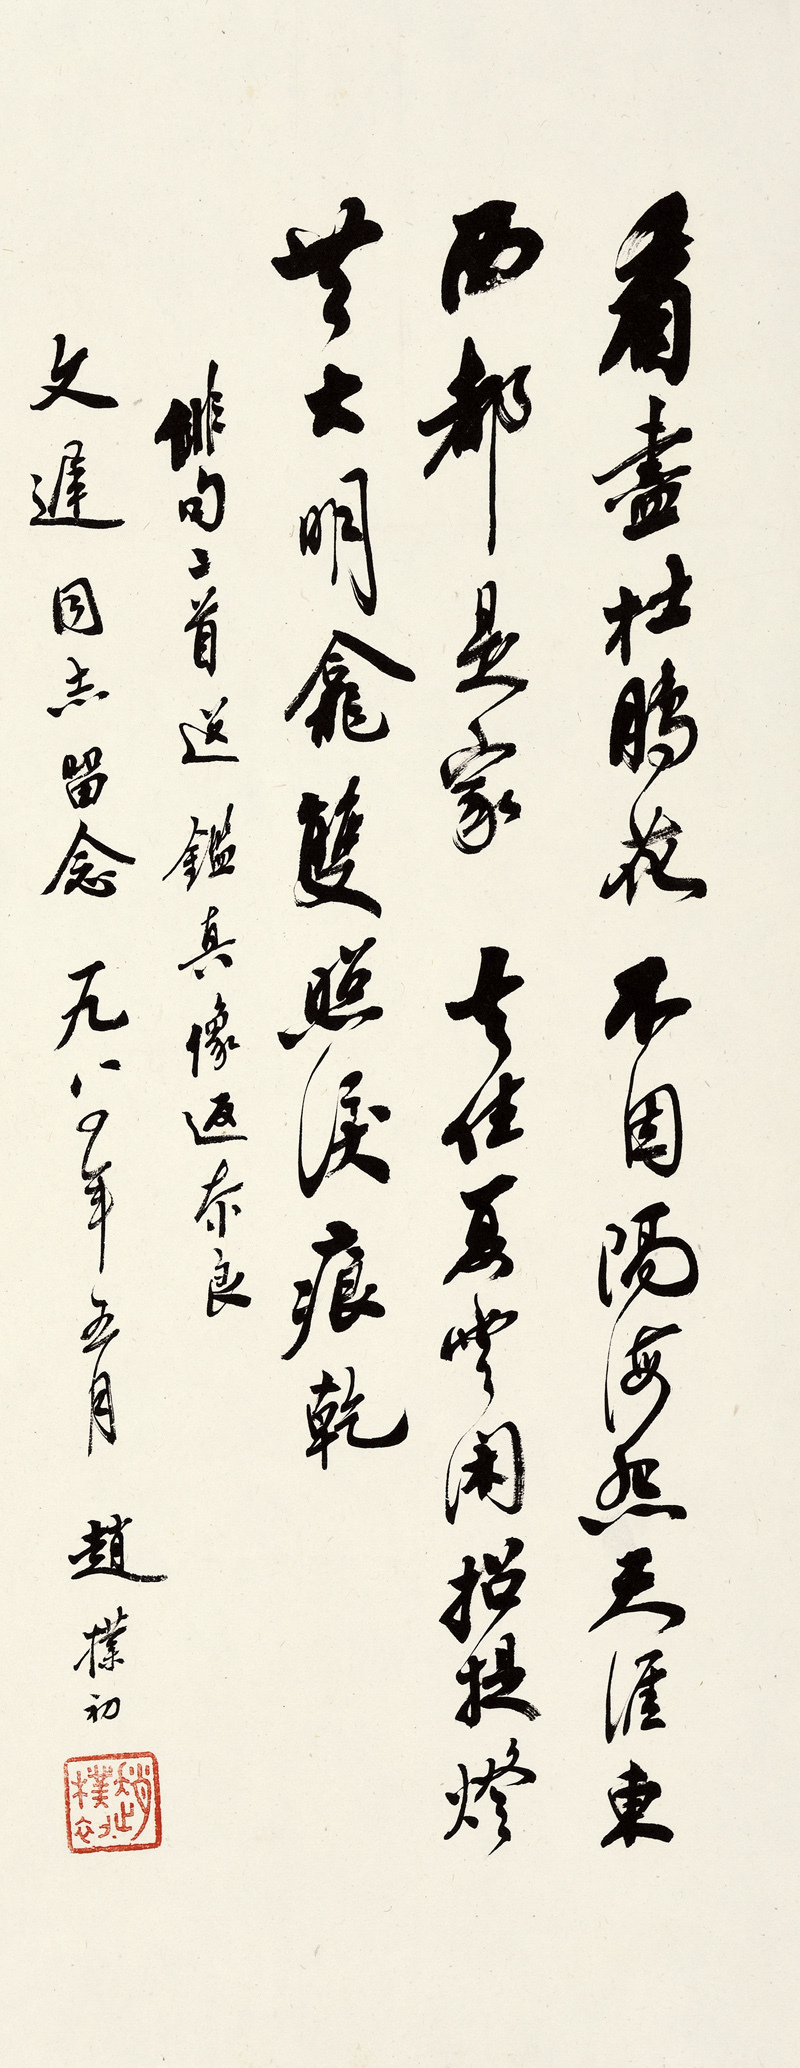 看盡杜鵑花 不因隔海怨天涯東
西都是家 去住夏雲閑招提燈
共大明龕雙照淚痕乾
俳句二首送 鑑真像返奈良
文遲同志留念 一九八〇年五月 趙樸初
趙樸初